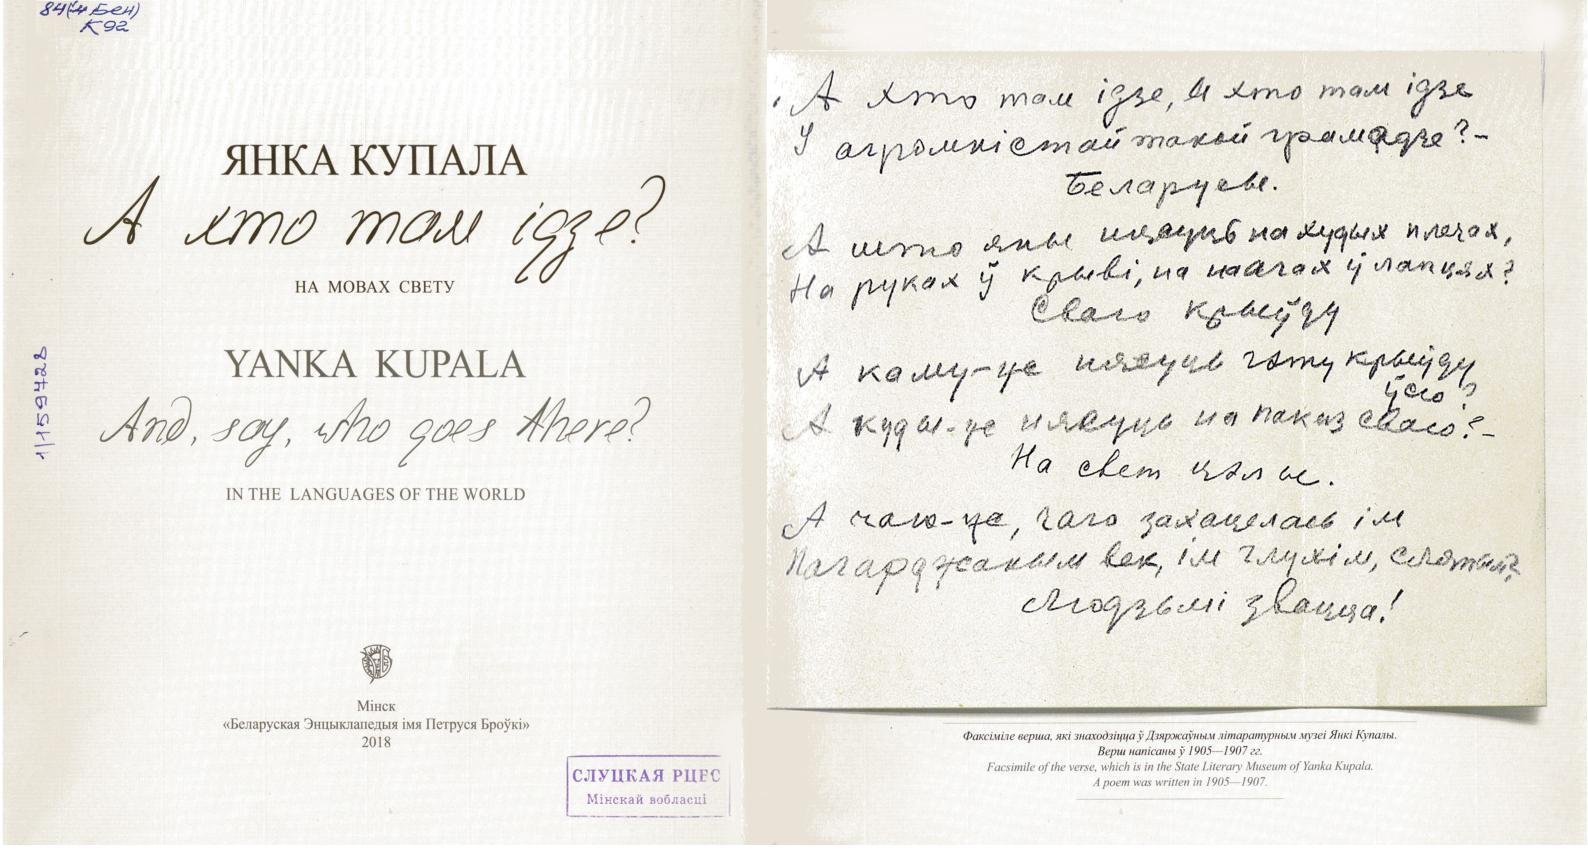 84(4Беи)
К92
ЯНКА КУПАЛА
А хто там ідзе?
НА МОВАХ СВЕТУ
YANKA KUPALA
And, say, who goes there?
IN THE LANGUAGES OF THE WORLD
1/159428
Мінск
«Беларуская Энцыклапедыя імя Петруся Броўкі»
2018
СЛУЦКАЯ РЦБС
Мінскай вобласці
А хто там ідзе, а хто там ідзе
У агромністай такой грамадзе?-
Беларусы.
А што яны нясуць на худых плечах,
На руках ў крыві, на нагах ў лапцях?
Сваю крыўду
А каму-це нясуць гэту крыўду
ўсю?
А куды-це нясуць на паказ сваю?-
На свет цэлы.
А чаго-це, чаго захацелась ім
Пагарджаным век, ім глухім, сляпым?
Людзьмі звацца!
Факсіміле верша, які знаходзіцца ў Дзяржаўным літаратурным музеі Янкі Купалы.
Верш напісаны ў 1905—1907 гг.
Facsimile of the verse, which is in the State Literary Museum of Yanka Kupala.
A poem was written in 1905—1907.